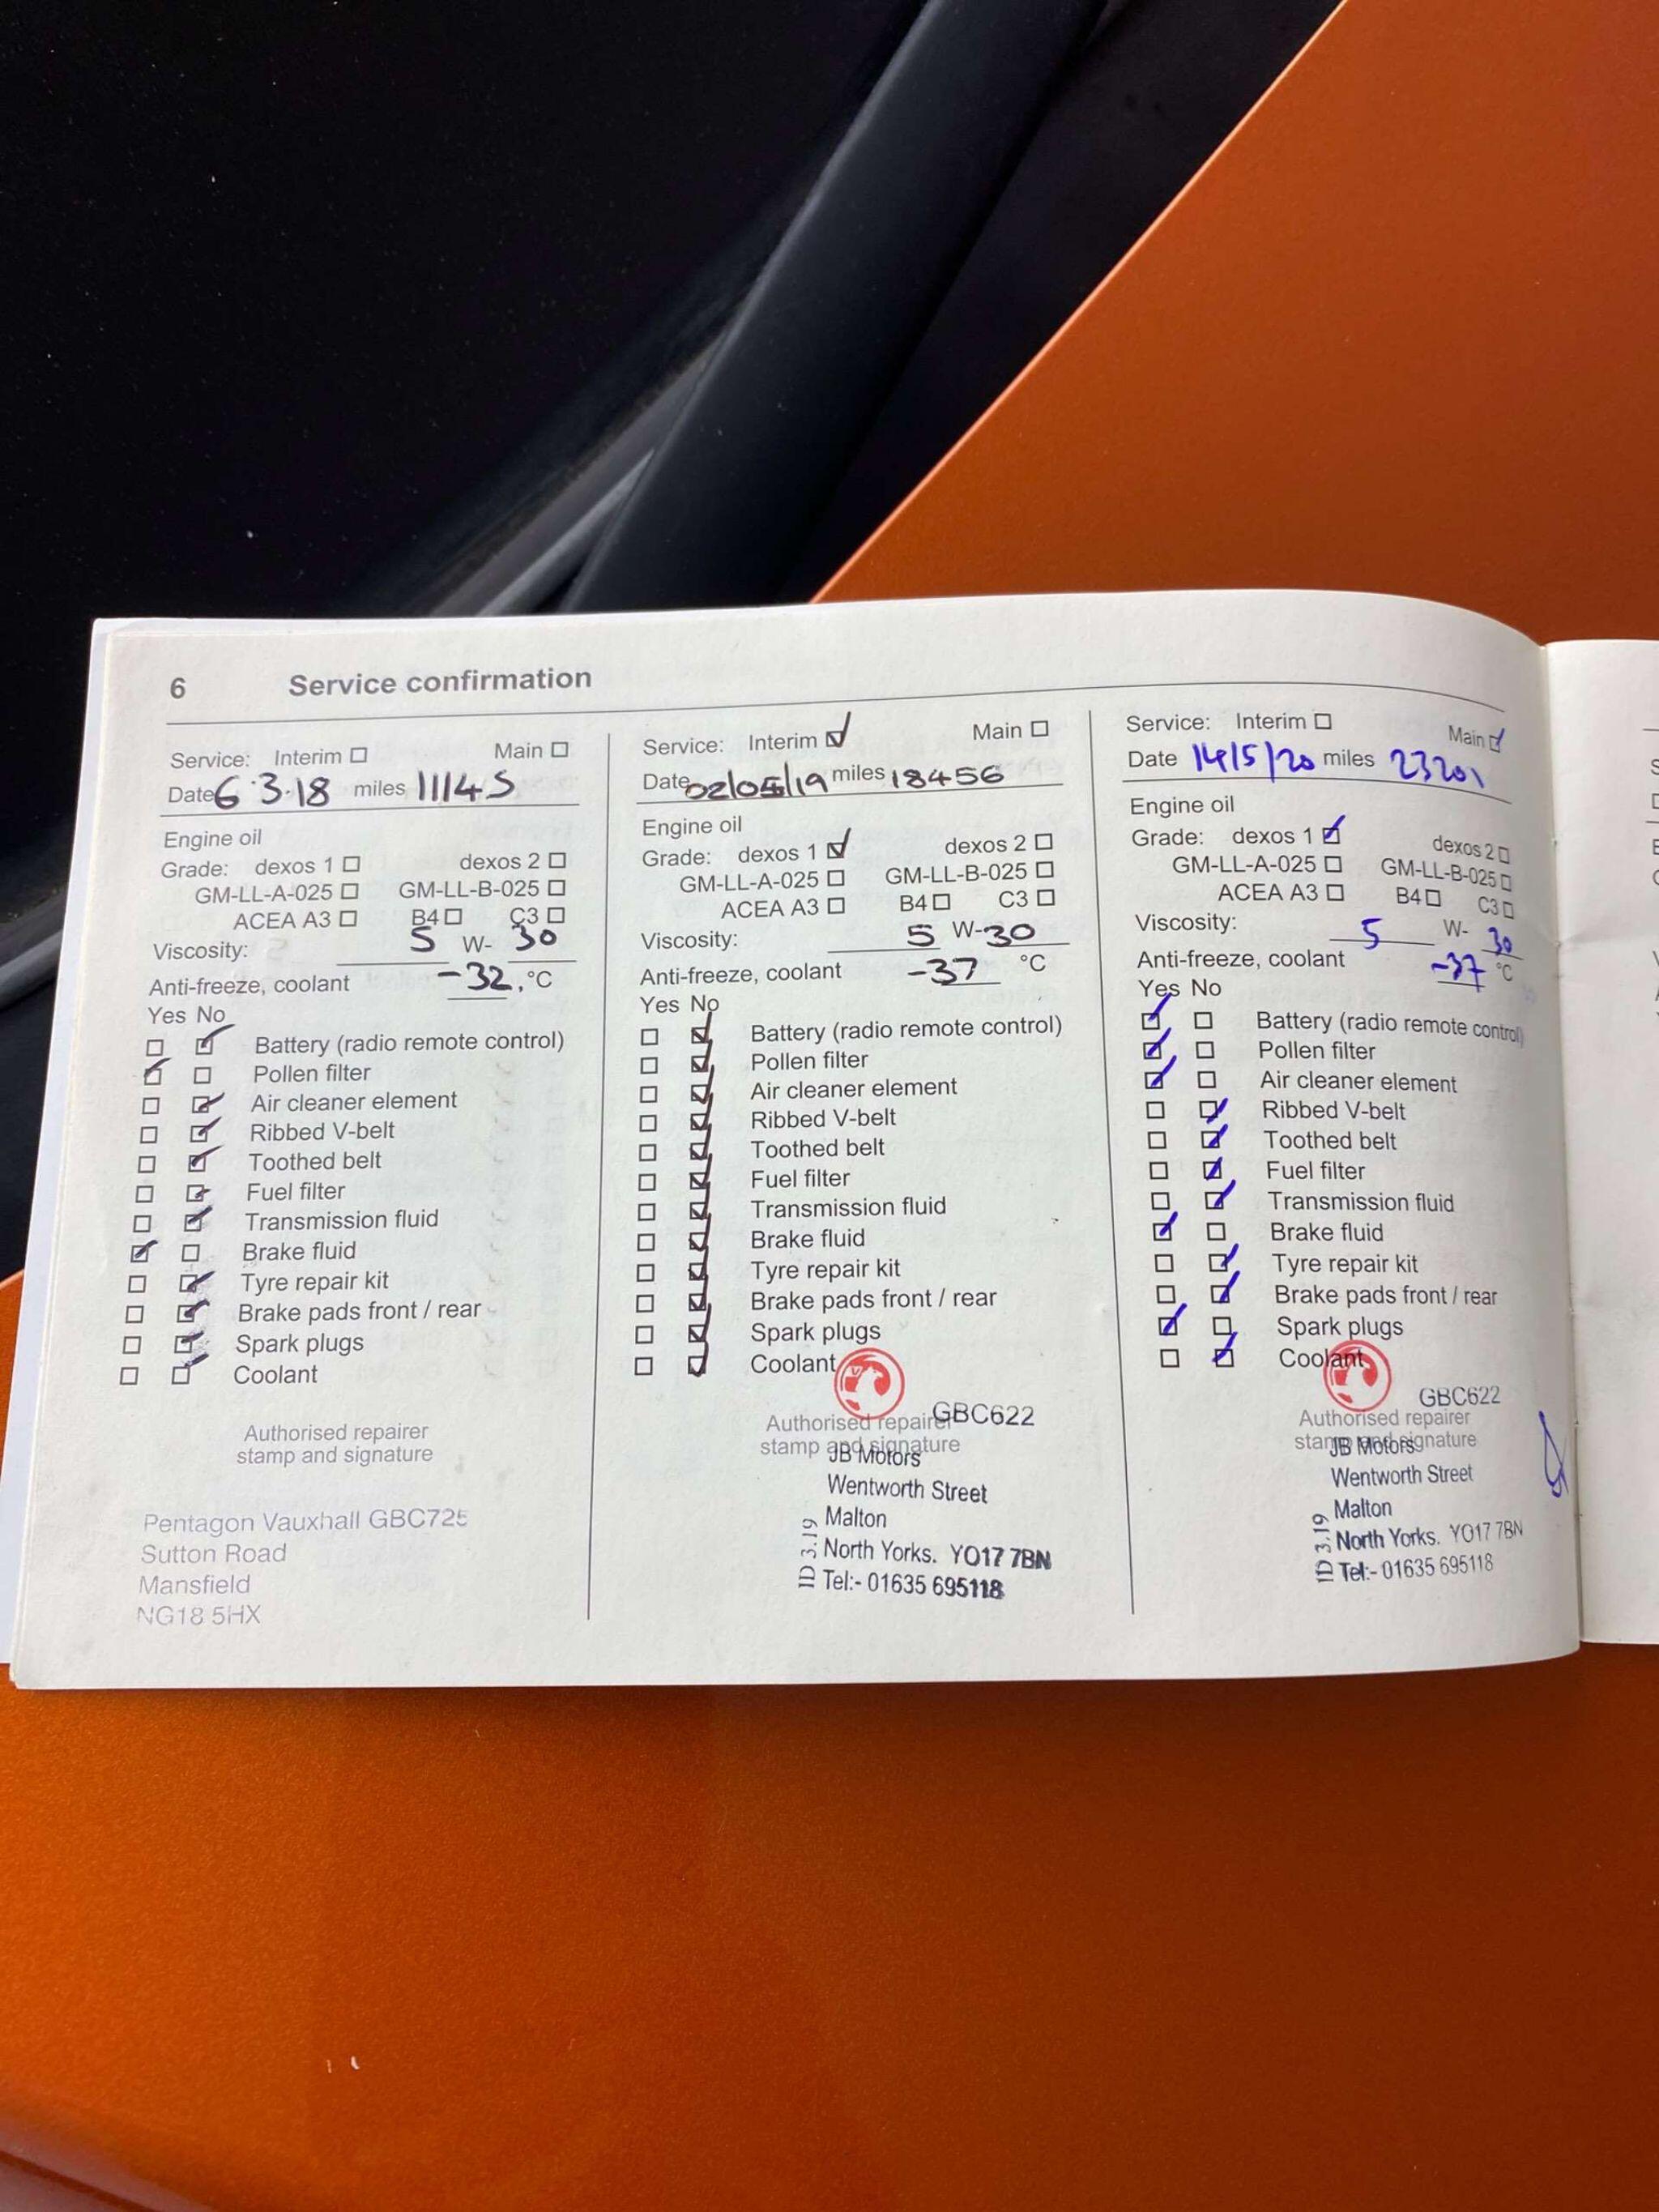 6 Service confirmation
Service: Interim Main
Date 6.3.18 miles 11145
Engine oil
Grade: dexos 1 dexos 2
GM-LL-A-025 GM-LL-B-025
ACEA A3 B4 C3
Viscosity: 5 W- 30
Anti-freeze, coolant -32 °C
Yes No
Battery (radio remote control)
Pollen filter
Air cleaner element
Ribbed V-belt
Toothed belt
Fuel filter
Transmission fluid
Brake fluid
Tyre repair kit
Brake pads front / rear
Spark plugs
Coolant
Authorised repairer
stamp and signature
Pentagon Vauxhall GBC725
Sutton Road
Mansfield
NG18 5HX
Service: Interim Main
Date 02/05/19 miles 18456
Engine oil
Grade: dexos 1 dexos 2
GM-LL-A-025 GM-LL-B-025
ACEA A3 B4 C3
Viscosity: 5 W-30
Anti-freeze, coolant -37 °C
Yes No
Battery (radio remote control)
Pollen filter
Air cleaner element
Ribbed V-belt
Toothed belt
Fuel filter
Transmission fluid
Brake fluid
Tyre repair kit
Brake pads front / rear
Spark plugs
Coolant
GBC622
Authorised repairer
stamp and signature
JB Motors
Wentworth Street
Malton
North Yorks. YO17 7BN
Tel:- 01635 695118
ID 3.19
Service: Interim Main
Date 14/5/20 miles 23201
Engine oil
Grade: dexos 1 dexos 2
GM-LL-A-025 GM-LL-B-025
ACEA A3 B4 C3
Viscosity: 5 W- 30
Anti-freeze, coolant -37 °C
Yes No
Battery (radio remote control)
Pollen filter
Air cleaner element
Ribbed V-belt
Toothed belt
Fuel filter
Transmission fluid
Brake fluid
Tyre repair kit
Brake pads front / rear
Spark plugs
Coolant
GBC622
Authorised repairer
stamp and signature
JB Motors
Wentworth Street
Malton
North Yorks. YO17 7BN
Tel:- 01635 695118
ID 3.19